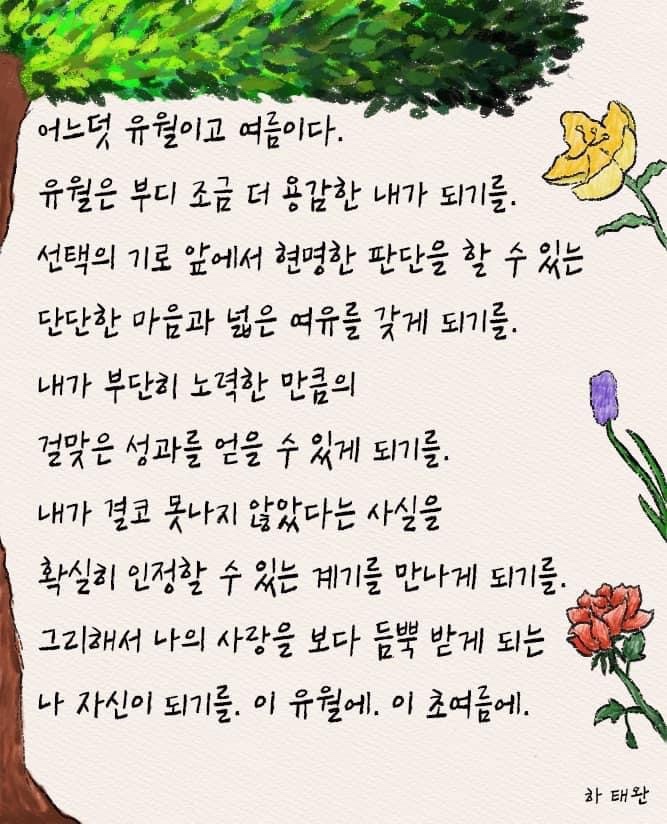 어느덧 유월이고 여름이다.
유월은 부디 조금 더 용감한 내가 되기를.
선택의 기로 앞에서 현명한 판단을 할 수 있는
단단한 마음과 넓은 여유를 갖게 되기를.
내가 부단히 노력한 만큼의
걸맞은 성과를 얻을 수 있게 되기를.
내가 결코 못나지 않았다는 사실을
확실히 인정할 수 있는 계기를 만나게 되기를.
그리해서 나의 사랑을 보다 듬뿍 받게 되는
나 자신이 되기를. 이 유월에. 이 초여름에.
하 태완